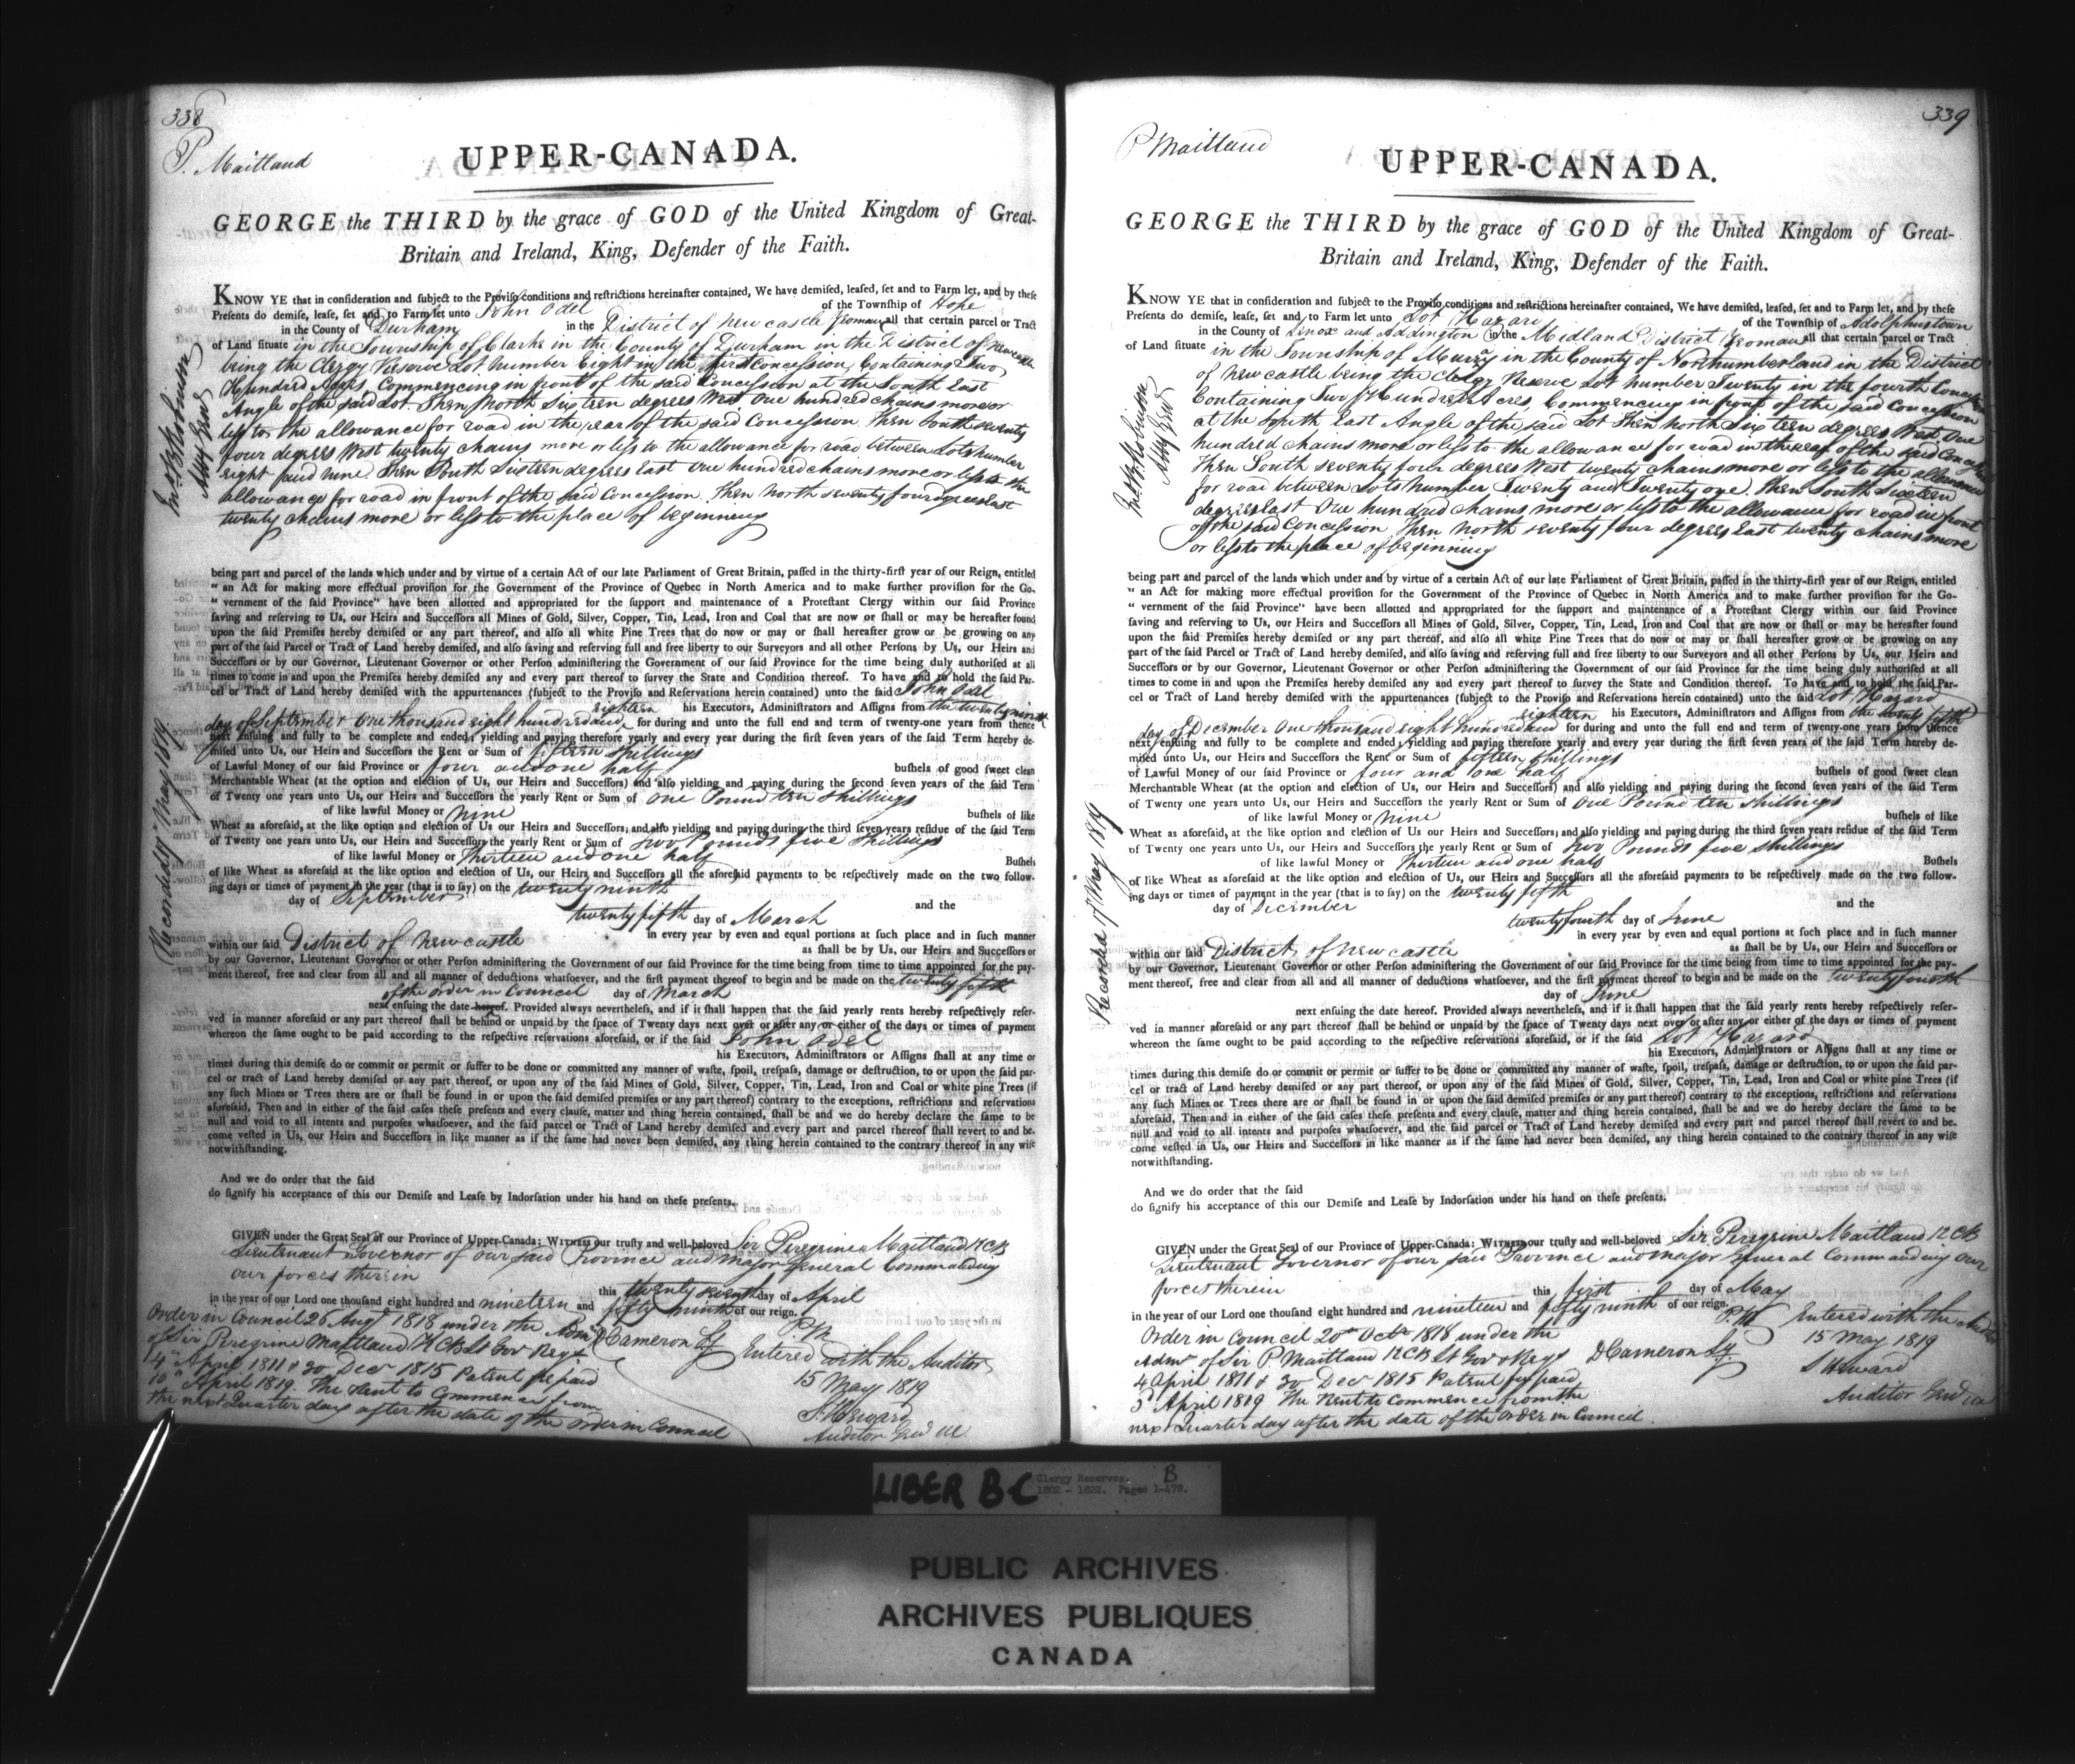 338
P. Maitland
UPPER-CANADA.
GEORGE the THIRD by the grace of GOD of the United Kingdom of Great-
Britain and Ireland, King, Defender of the Faith.
KNOW YE that in conſideration and ſubject to the Proviſo conditions and reſtrictions hereinafter contained, We have demiſed, leaſed, ſet and to Farm let, and by theſe
Preſents do demiſe, leaſe, ſet and to Farm let unto John Odel of the Township of Hope
in the County of Durham in the District of Newcastle Yeoman all that certain parcel or Tract
of Land ſituate in the Township of Clarke in the County of Durham in the District of Newcastle
being the Clergy Reserve Lot number Eight in the first Concession, Containing Two
Hundred Acres, Commencing in front of the said Concession at the South East
Angle of the said Lot. Then North Sixteen degrees West One hundred chains more or
leſs to the allowance for road in the rear of the said Concession Then South seventy
four degrees West twenty chains more or leſs to the allowance for road between Lots number
eight and nine. Then South Sixteen degrees East One hundred chains more or leſs to the
allowance for road in front of the said Concession. Then North seventy four degrees East
twenty chains more or leſs to the place of beginning
Jno. B. Robinson
Atty Genl
being part and parcel of the lands which under and by virtue of a certain Act of our late Parliament of Great Britain, paſſed in the thirty-firſt year of our Reign, entitled
“ an Act for making more effectual proviſion for the Government of the Province of Quebec in North America and to make further proviſion for the Go-
“ vernment of the ſaid Province” have been allotted and appropriated for the ſupport and maintenance of a Proteſtant Clergy within our ſaid Province
ſaving and reſerving to Us, our Heirs and Succeſſors all Mines of Gold, Silver, Copper, Tin, Lead, Iron and Coal that are now or ſhall or may be hereafter found
upon the ſaid Premiſes hereby demiſed or any part thereof, and alſo all white Pine Trees that do now or may or ſhall hereafter grow or be growing on any
part of the ſaid Parcel or Tract of Land hereby demiſed, and alſo ſaving and reſerving full and free liberty to our Surveyors and all other Perſons by Us, our Heirs and
Succeſſors or by our Governor, Lieutenant Governor or other Perſon adminiſtering the Government of our ſaid Province for the time being duly authoriſed at all
times to come in and upon the Premiſes hereby demiſed any and every part thereof to ſurvey the State and Condition thereof. To have and to hold the ſaid Par-
cel or Tract of Land hereby demiſed with the appurtenances (ſubject to the Proviſo and Reſervations herein contained) unto the ſaid John Odel
his Executors, Adminiſtrators and Aſſigns from the twenty ninth
day of September One thousand eight hundred and eighteen for during and unto the full end and term of twenty-one years from thence
next enſuing and fully to be complete and ended; yielding and paying therefore yearly and every year during the firſt ſeven years of the ſaid Term hereby de-
miſed unto Us, our Heirs and Succeſſors the Rent or Sum of fifteen shillings
of Lawful Money of our ſaid Province or four and one half buſhels of good ſweet clean
Merchantable Wheat (at the option and election of Us, our Heirs and Succeſſors) and alſo yielding and paying during the ſecond ſeven years of the ſaid Term
of Twenty one years unto Us, our Heirs and Succeſſors the yearly Rent or Sum of One Pound ten shillings
of like lawful Money or nine buſhels of like
Wheat as aforeſaid, at the like option and election of Us our Heirs and Succeſſors; and alſo yielding and paying during the third ſeven years reſidue of the ſaid Term
of Twenty one years unto Us, our Heirs and Succeſſors the yearly Rent or Sum of Two Pounds five shillings
of like lawful Money or Thirteen and one half Buſhels
of like Wheat as aforeſaid at the like option and election of Us, our Heirs and Succeſſors all the aforeſaid payments to be reſpectively made on the two follow-
ing days or times of payment in the year (that is to ſay) on the twenty ninth
day of September and the
twenty fifth day of March
in every year by even and equal portions at ſuch place and in ſuch manner
within our ſaid District of Newcastle as ſhall be by Us, our Heirs and Succeſſors or
by our Governor, Lieutenant Governor or other Perſon adminiſtering the Government of our ſaid Province for the time being from time to time appointed for the pay-
ment thereof, free and clear from all and all manner of deductions whatſoever, and the firſt payment thereof to begin and be made on the twenty fifth
day of March
of the order in Council
next enſuing the date hereof. Provided always nevertheleſs, and if it ſhall happen that the ſaid yearly rents hereby reſpectively reſer-
ved in manner aforeſaid or any part thereof ſhall be behind or unpaid by the ſpace of Twenty days next over or after any or either of the days or times of payment
whereon the ſame ought to be paid according to the reſpective reſervations aforeſaid, or if the ſaid John Odel
his Executors, Adminiſtrators or Aſſigns ſhall at any time or
times during this demiſe do or commit or permit or ſuffer to be done or committed any manner of waſte, ſpoil, treſpaſs, damage or deſtruction, to or upon the ſaid par-
cel or tract of Land hereby demiſed or any part thereof, or upon any of the ſaid Mines of Gold, Silver, Copper, Tin, Lead, Iron and Coal or white pine Trees (if
any ſuch Mines or Trees there are or ſhall be found in or upon the ſaid demiſed premiſes or any part thereof) contrary to the exceptions, reſtrictions and reſervations
aforeſaid, Then and in either of the ſaid caſes theſe preſents and every clauſe, matter and thing herein contained, ſhall be and we do hereby declare the ſame to be
null and void to all intents and purpoſes whatſoever, and the ſaid parcel or Tract of Land hereby demiſed and every part and parcel thereof ſhall revert to and be-
come veſted in Us, our Heirs and Succeſſors in like manner as if the ſame had never been demiſed, any thing herein contained to the contrary thereof in any wiſe
notwithſtanding.
And we do order that the ſaid
do ſignify his acceptance of this our Demiſe and Leaſe by Indorſation under his hand on theſe preſents.
GIVEN under the Great Seal of our Province of Upper-Canada: WITNESS our truſty and well-beloved Sir Peregrine Maitland KCB
Lieutenant Governor of our said Province and Major General Commanding
our forces therein
this twenty seventh day of April
in the year of our Lord one thouſand eight hundred and nineteen and fifty ninth of our reign.
Recorded 17 May 1819
Order in Council 26 Augt 1818 under the Adm
of Sir Peregrine Maitland KCB Lt Gov Regs
4 April 1811 & 30 Decr 1815 Patent fee paid
10 April 1819. The Rent to Commence from
the next Quarter day after the date of the order in Council
D Cameron Sy
P.M.
Entered with the Auditor
15 May 1819
S Heward
Auditor Genl
339
P Maitland
UPPER-CANADA.
GEORGE the THIRD by the grace of GOD of the United Kingdom of Great-
Britain and Ireland, King, Defender of the Faith.
KNOW YE that in conſideration and ſubject to the Proviſo conditions and reſtrictions hereinafter contained, We have demiſed, leaſed, ſet and to Farm let, and by theſe
Preſents do demiſe, leaſe, ſet and to Farm let unto Lot Hazard of the Township of Adolphustown
in the County of Lenox and Addington in the Midland District Yeoman all that certain parcel or Tract
of Land ſituate in the Township of Murray in the County of Northumberland in the District
of Newcastle being the Clergy Reserve Lot number Twenty in the fourth Concession
Containing Two Hundred Acres, Commencing in front of the said Concession
at the South East Angle of the said Lot Then North Sixteen degrees West One
hundred chains more or leſs to the allowance for road in the rear of the said Concession
Then South seventy four degrees West twenty chains more or leſs to the allowance
for road between Lots number Twenty and Twenty one. Then South Sixteen
degrees East One hundred chains more or leſs to the allowance for road in front
of the said Concession Then North seventy four degrees East twenty chains more
or leſs to the place of beginning
Jno. B. Robinson
Atty Genl
being part and parcel of the lands which under and by virtue of a certain Act of our late Parliament of Great Britain, paſſed in the thirty-firſt year of our Reign, entitled
“ an Act for making more effectual proviſion for the Government of the Province of Quebec in North America and to make further proviſion for the Go-
“ vernment of the ſaid Province” have been allotted and appropriated for the ſupport and maintenance of a Proteſtant Clergy within our ſaid Province
ſaving and reſerving to Us, our Heirs and Succeſſors all Mines of Gold, Silver, Copper, Tin, Lead, Iron and Coal that are now or ſhall or may be hereafter found
upon the ſaid Premiſes hereby demiſed or any part thereof, and alſo all white Pine Trees that do now or may or ſhall hereafter grow or be growing on any
part of the ſaid Parcel or Tract of Land hereby demiſed, and alſo ſaving and reſerving full and free liberty to our Surveyors and all other Perſons by Us, our Heirs and
Succeſſors or by our Governor, Lieutenant Governor or other Perſon adminiſtering the Government of our ſaid Province for the time being duly authoriſed at all
times to come in and upon the Premiſes hereby demiſed any and every part thereof to ſurvey the State and Condition thereof. To have and to hold the ſaid Par-
cel or Tract of Land hereby demiſed with the appurtenances (ſubject to the Proviſo and Reſervations herein contained) unto the ſaid Lot Hazard
his Executors, Adminiſtrators and Aſſigns from the twenty fifth
day of December One thousand eight hundred and eighteen for during and unto the full end and term of twenty-one years from thence
next enſuing and fully to be complete and ended; yielding and paying therefore yearly and every year during the firſt ſeven years of the ſaid Term hereby de-
miſed unto Us, our Heirs and Succeſſors the Rent or Sum of fifteen shillings
of Lawful Money of our ſaid Province or four and one half buſhels of good ſweet clean
Merchantable Wheat (at the option and election of Us, our Heirs and Succeſſors) and alſo yielding and paying during the ſecond ſeven years of the ſaid Term
of Twenty one years unto Us, our Heirs and Succeſſors the yearly Rent or Sum of One Pound ten shillings
of like lawful Money or nine buſhels of like
Wheat as aforeſaid, at the like option and election of Us our Heirs and Succeſſors; and alſo yielding and paying during the third ſeven years reſidue of the ſaid Term
of Twenty one years unto Us, our Heirs and Succeſſors the yearly Rent or Sum of Two Pounds five shillings
of like lawful Money or Thirteen and one half Buſhels
of like Wheat as aforeſaid at the like option and election of Us, our Heirs and Succeſſors all the aforeſaid payments to be reſpectively made on the two follow-
ing days or times of payment in the year (that is to ſay) on the twenty fifth
day of December and the
twenty fourth day of June
in every year by even and equal portions at ſuch place and in ſuch manner
within our ſaid District of Newcastle as ſhall be by Us, our Heirs and Succeſſors or
by our Governor, Lieutenant Governor or other Perſon adminiſtering the Government of our ſaid Province for the time being from time to time appointed for the pay-
ment thereof, free and clear from all and all manner of deductions whatſoever, and the firſt payment thereof to begin and be made on the twenty fourth
day of June
next enſuing the date hereof. Provided always nevertheleſs, and if it ſhall happen that the ſaid yearly rents hereby reſpectively reſer-
ved in manner aforeſaid or any part thereof ſhall be behind or unpaid by the ſpace of Twenty days next over or after any or either of the days or times of payment
whereon the ſame ought to be paid according to the reſpective reſervations aforeſaid, or if the ſaid Lot Hazard
his Executors, Adminiſtrators or Aſſigns ſhall at any time or
times during this demiſe do or commit or permit or ſuffer to be done or committed any manner of waſte, ſpoil, treſpaſs, damage or deſtruction, to or upon the ſaid par-
cel or tract of Land hereby demiſed or any part thereof, or upon any of the ſaid Mines of Gold, Silver, Copper, Tin, Lead, Iron and Coal or white pine Trees (if
any ſuch Mines or Trees there are or ſhall be found in or upon the ſaid demiſed premiſes or any part thereof) contrary to the exceptions, reſtrictions and reſervations
aforeſaid, Then and in either of the ſaid caſes theſe preſents and every clauſe, matter and thing herein contained, ſhall be and we do hereby declare the ſame to be
null and void to all intents and purpoſes whatſoever, and the ſaid parcel or Tract of Land hereby demiſed and every part and parcel thereof ſhall revert to and be-
come veſted in Us, our Heirs and Succeſſors in like manner as if the ſame had never been demiſed, any thing herein contained to the contrary thereof in any wiſe
notwithſtanding.
And we do order that the ſaid
do ſignify his acceptance of this our Demiſe and Leaſe by Indorſation under his hand on theſe preſents.
GIVEN under the Great Seal of our Province of Upper-Canada: WITNESS our truſty and well-beloved Sir Peregrine Maitland KCB
Lieutenant Governor of our said Province and Major General Commanding our
forces therein
this first day of May
in the year of our Lord one thouſand eight hundred and nineteen and fifty ninth of our reign.
Recorded 17 May 1819
Order in Council 20th Octr 1818 under the
Admn of Sir P Maitland KCB Lt Gov Regs
4 April 1811 & 30 Decr 1815 Patent fee paid
5 April 1819 The Rent to Commence from the
next Quarter day after the date of the order in Council
D Cameron Sy
P.M.
Entered with the Auditor
15 May 1819
S Heward
Auditor Genl
LIBER B-C
Clergy Reserves. B
1802 - 1822. Pages 1-478.
PUBLIC ARCHIVES
ARCHIVES PUBLIQUES
CANADA